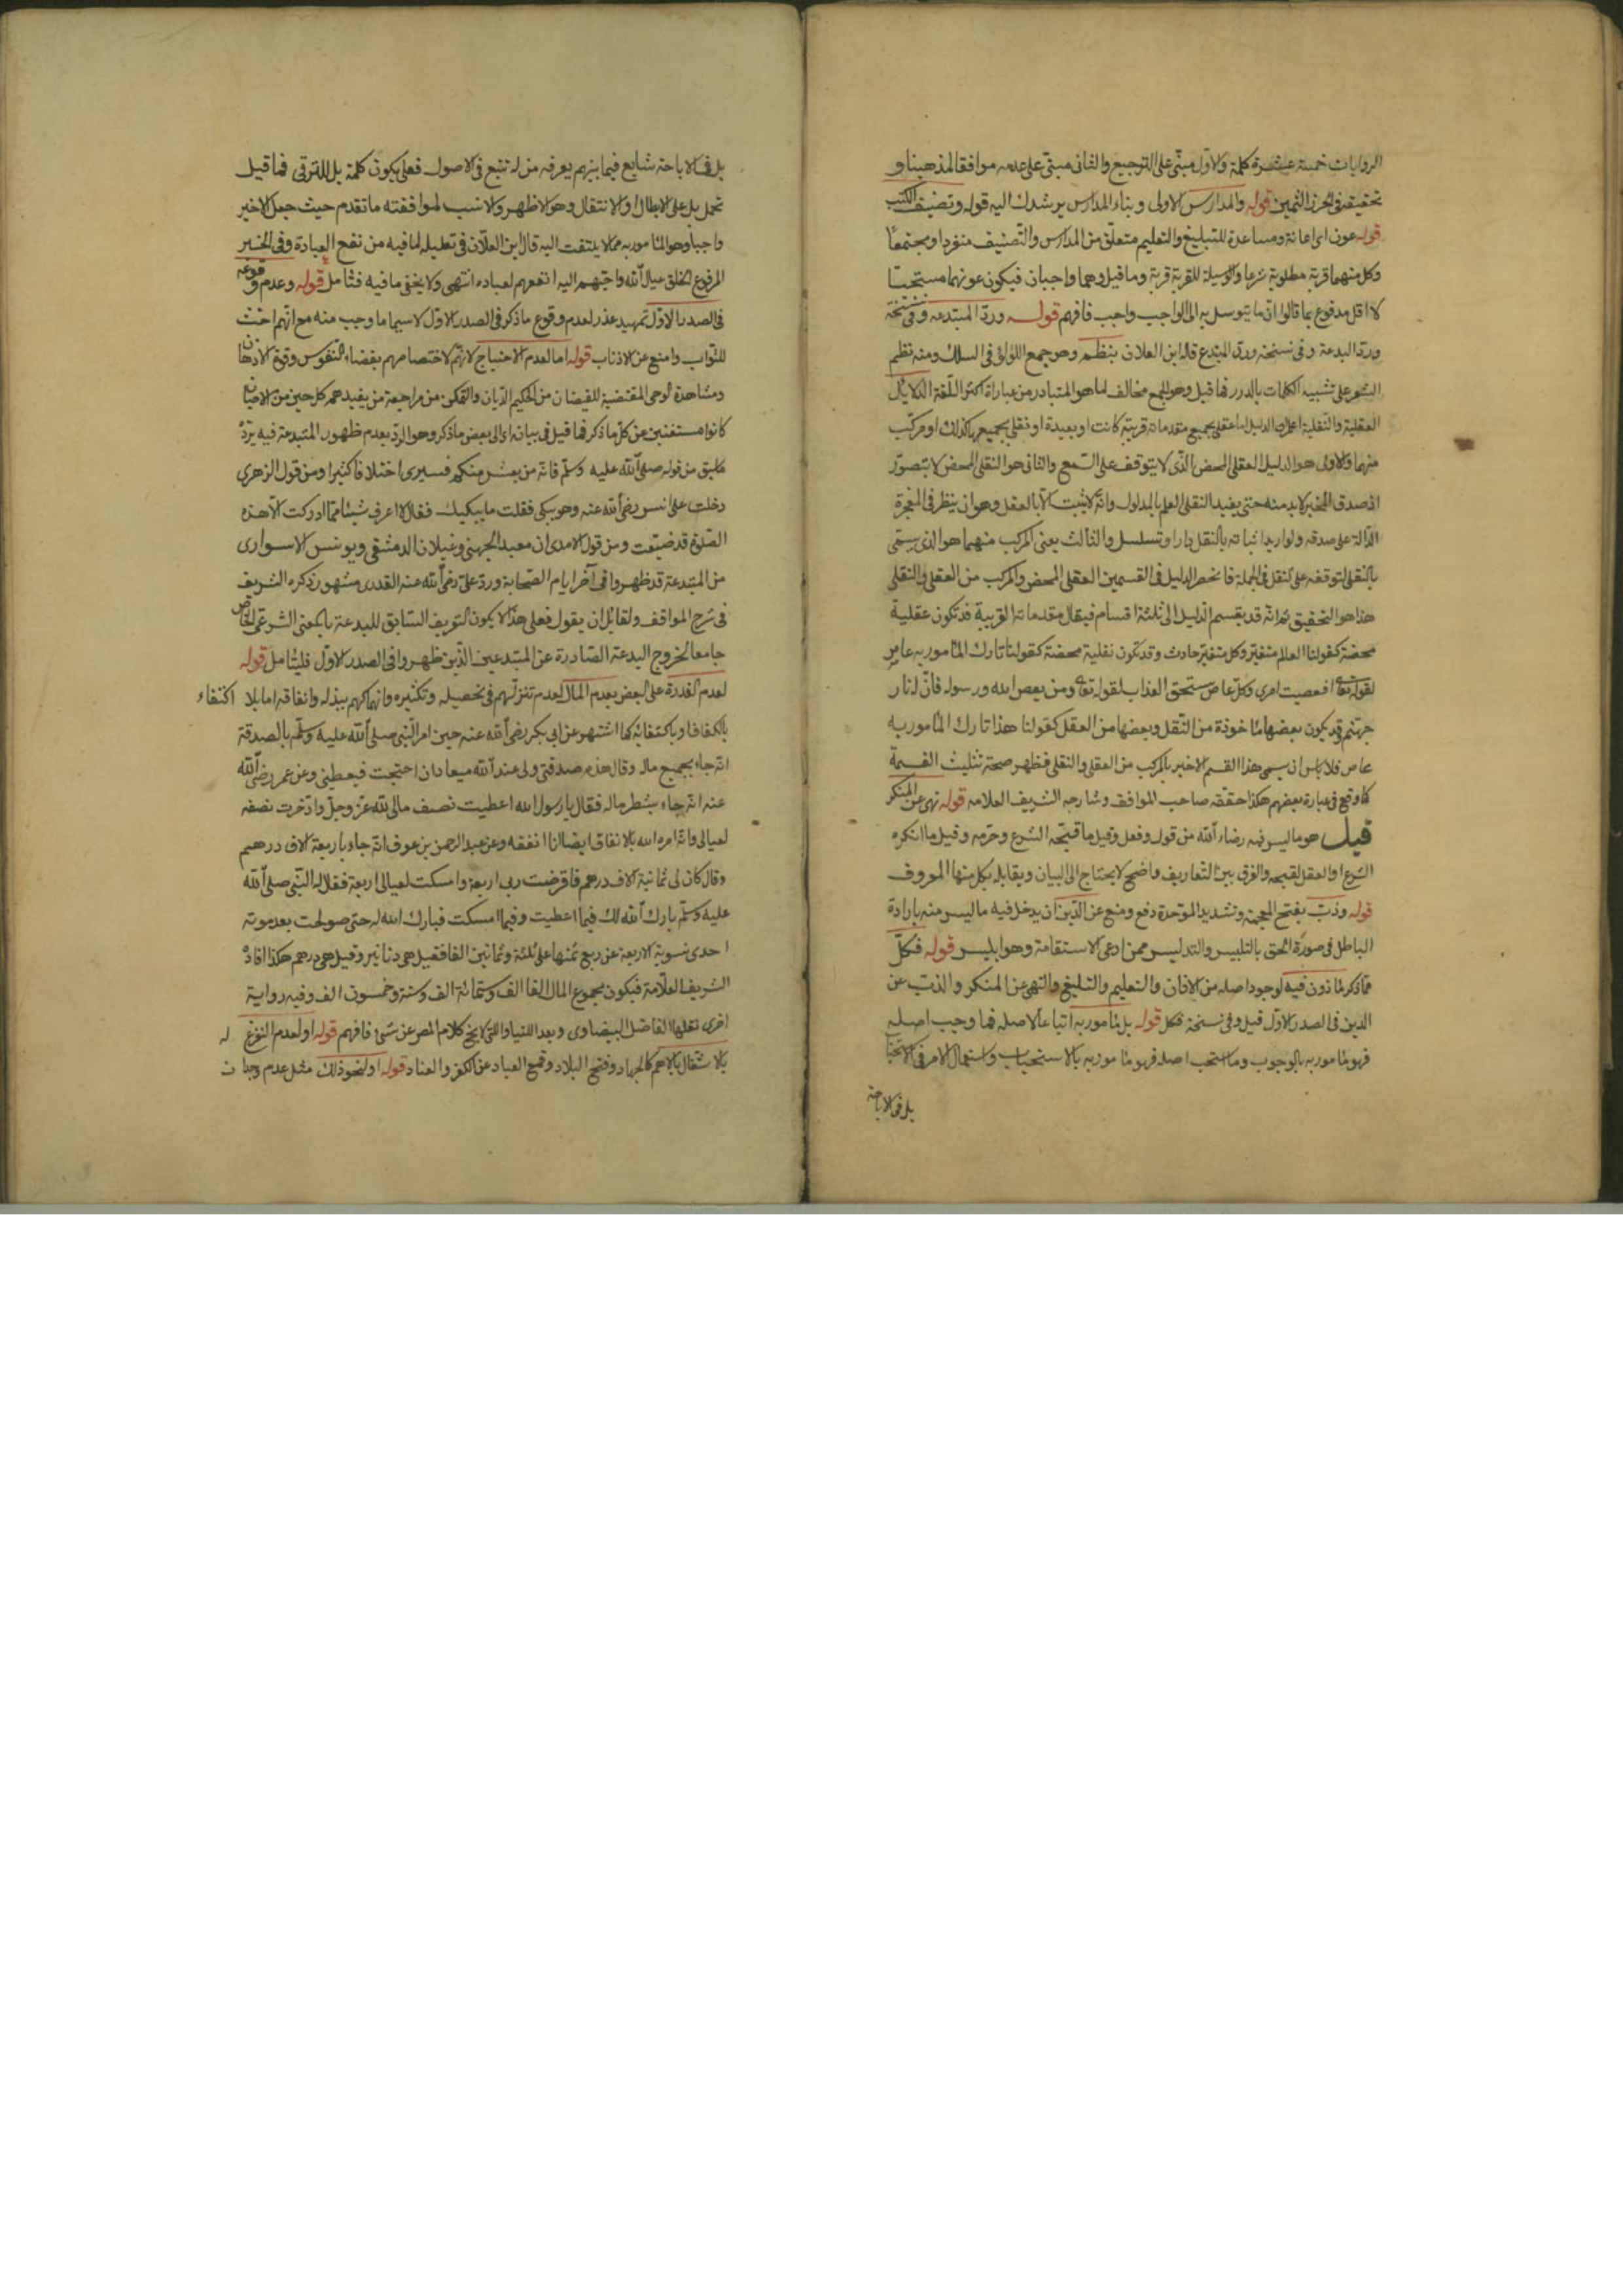 الروايات خمسة عشرة كلمة والاول مبنى على الترجيع والثانى مبنى على عدمه موافقا لمذهبنا و
تحقيقه فى الحرز الثمين قوله والمدارس الاولى وبناء المدارس يرشدك اليه قوله وتصنيف الكتب
قوله عون اى اعانة ومساعدة للتبليغ والتعليم متعلق من المدارس والتصنيف منفردا ومجتمعا
وكل منهما قربة مطلوبة شرعا والوسيلة للقربة قربة وما قيل وهما واجبان فيكون عونهما مستحبا
لا اقل مدفوع بما قالوا ان ما يتوسل به الى الواجب واجب فافهم قوله ورد المبتدعه وفى نسخة
ورد البدعة وفى نسخة ورد المبتدع قال ابن العلان بنظم وهو جمع اللؤلؤ فى السلك ومنه نظم
الشعر على تشبيه الكلمات بالدرر فما قيل وهو الجمع مخالف لما هو المتبادر من عبارة اكثر اللغة الدلايل
العقلية والنقلية اعلم ان الدليل اما عقلى بجميع مقدماته قريبة كانت او بعيدة او نقلى بجميعها كذلك او مركب
منهما والاول هو الدليل العقلى المحض الذى لا يتوقف على السمع والثانى هو النقلى المحض لا يتصور
اذ صدق المخبر لا بد منه حتى يفيد النقلى العلم بالمدلول وانه لا يثبت الا بالعقل وهو ان ينظر فى المعجزة
الدالة على صدقه ولو اريد اثباته بالنقل دار او تسلسل والثالث يعنى المركب منهما هو الذى يسمى
بالنقلى لتوقفه على النقل فى الجملة فانحصر الدليل فى القسمين العقلى المحض والمركب من العقلى والنقلى
هذا هو التحقيق ثم انه قد يقسم الدليل الى ثلثة اقسام فيقال مقدماته القريبة قد تكون عقلية
محضة كقولنا العالم متغير وكل متغير حادث وقد تكون نقلية محضة كقولنا تارك المأمور به عاص
لقوله تعالى افعصيت امرى وكل عاص يستحق العذاب لقوله تعالى ومن يعص الله ورسوله فان له نار
جهنم وقد يكون بعضها مأخوذة من النقل وبعضها من العقل كقولنا هذا تارك المأمور به
عاص فلا بأس ان يسمى هذا القسم الاخير بالمركب من العقلى والنقلى فظهر صحة تثليث القسمة
كما وقع فى عبارة بعضهم هكذا حققه صاحب المواقف وشارحه الشريف العلامه قوله نهى عن المنكر
قيل هو ما ليس فيه رضاء الله من قول وفعل وقيل ما قبحه الشرع وحرمه وقيل ما انكره
الشرع او العقل لقبحه والفرق بين التعاريف واضح لا يحتاج الى البيان ويقابله بكل منها المعروف
قوله وذب بفتح المعجمة وتشديد الموحدة دفع ومنع عن الدين ان يدخل فيه ما ليس منه بارادة
الباطل فى صورة الحق بالتلبيس والتدليس ممن ادعى الاستقامة وهو ابليس قوله فكل
مما ذكر مأذون فيه لوجود اصله من الاذان والتعليم والتبليغ والنهى عن المنكر والذب عن
الدين فى الصدر الاول قيل وفى نسخة فكل قوله بل مأمور به اتباعا لاصله فما وجب اصله
فهو مأمور به بالوجوب وما استحب اصله فهو مأمور به بالاستحباب واستعمال الامر فى الاستحباب
بل فى الاباحة
بل فى الاباحة شايع فيما بينهم يعرفه من له تتبع فى الاصول فعلى يكون كلمة بل للترقى فما قيل
تحمل بل على الابطال او الانتقال وهو الاظهر والانسب لموافقته ما تقدم حيث جعل الاخير
واجبا وهو المأمور به مما لا يلتفت اليه قال ابن العلان فى تعليله لما فيه من نفع العبادة وفى الخبر
المرفوع الخلق عيال الله واحبهم اليه انفعهم لعباده انتهى ولا يخفى ما فيه فتأمل قوله وعدم وقوعه
فى الصدر الاول تمهيد عذر لعدم وقوع ما ذكر فى الصدر الاول لا سيما ما وجب منه مع انهم احث
للثواب وامنع عن الاذناب قوله اما لعدم الاحتياج لانهم لاختصاصهم بفضاء النفوس وقوة الاذهان
ومشاهدة الوحى المقتضية للفيضان من الحكيم الديان والتمكن من مراجعة من يفيدهم كل حين من الاحيان
كانوا مستغنين عن كل ما ذكر فما قيل فى بيانه اى الى بعض ما ذكر وهو الرد بعدم ظهور المبتدعة فيه يرده
ما سبق من قوله صلى الله عليه وسلم فانه من يعش منكم فسيرى اختلافا كثيرا ومن قول الزهرى
دخلت على انس رضى الله عنه وهو يبكى فقلت ما يبكيك فقال لا اعرف شيئا مما ادركت الا هذه
الصلوة قد ضيعت ومن قول الامدى ان معبد الجهنى وغيلان الدمشقى ويونس الاسوارى
من المبتدعة قد ظهروا فى آخر ايام الصحابة ورد على رضى الله عنه القدرى مشهور ذكره الشريف
فى شرح المواقف ولقائل ان يقول فعلى هذا لا يكون التعريف السابق للبدعة بالمعنى الشرعى الخاص
جامعا لخروج البدعة الصادرة عن المبتدعين الذين ظهروا فى الصدر الاول فليتأمل قوله
لعدم القدرة على البعض بعدم المال لعدم تنزلهم فى تحصيله وتكثيره وانهماكهم ببذله وانفاقه اما بلا اكتفاء
بالكفاف او باكتفائه كما اشتهر عن ابى بكر رضى الله عنه حين امر النبى صلى الله عليه وسلم بالصدقة
انه جاء بجميع ماله وقال هذه صدقتى ولى عند الله ميعاد ان احتجت فيعطينى وعن عمر رضى الله
عنه انه جاء بشطر ماله فقال يا رسول الله اعطيت نصف مالى لله عز وجل وادخرت نصفه
لعيالى وانه امره الله بالانفاق ايضا انا انفقه وعن عبد الرحمن بن عوف انه جاء باربعة الاف درهم
وقال كان لى ثمانية الاف درهم فاقرضت ربى اربعة وامسكت لعيالى اربعة فقال له النبى صلى الله
عليه وسلم بارك الله لك فيما اعطيت وفيما امسكت فبارك الله له حتى صولحت بعد موته
احدى نسوية الاربعة عن ربع ثمنها على ثلثة وثمانين الفا فقيل هى دنانير وقيل هى درهم هكذا افاده
الشريف العلامة فيكون مجموع المال الفا الف وستمائة الف وستة وخمسون الف وفيه رواية
اخرى نقلها الفاضل البيضاوى وبعد اللتيا والتى لا يخ كلام المص عن شئ فافهم قوله او لعدم التفرغ له
بالاشتغال بالاهم كالجهاد وفتح البلاد وقمع العباد عن الكفر والعناد قوله او لنحو ذلك مثل عدم